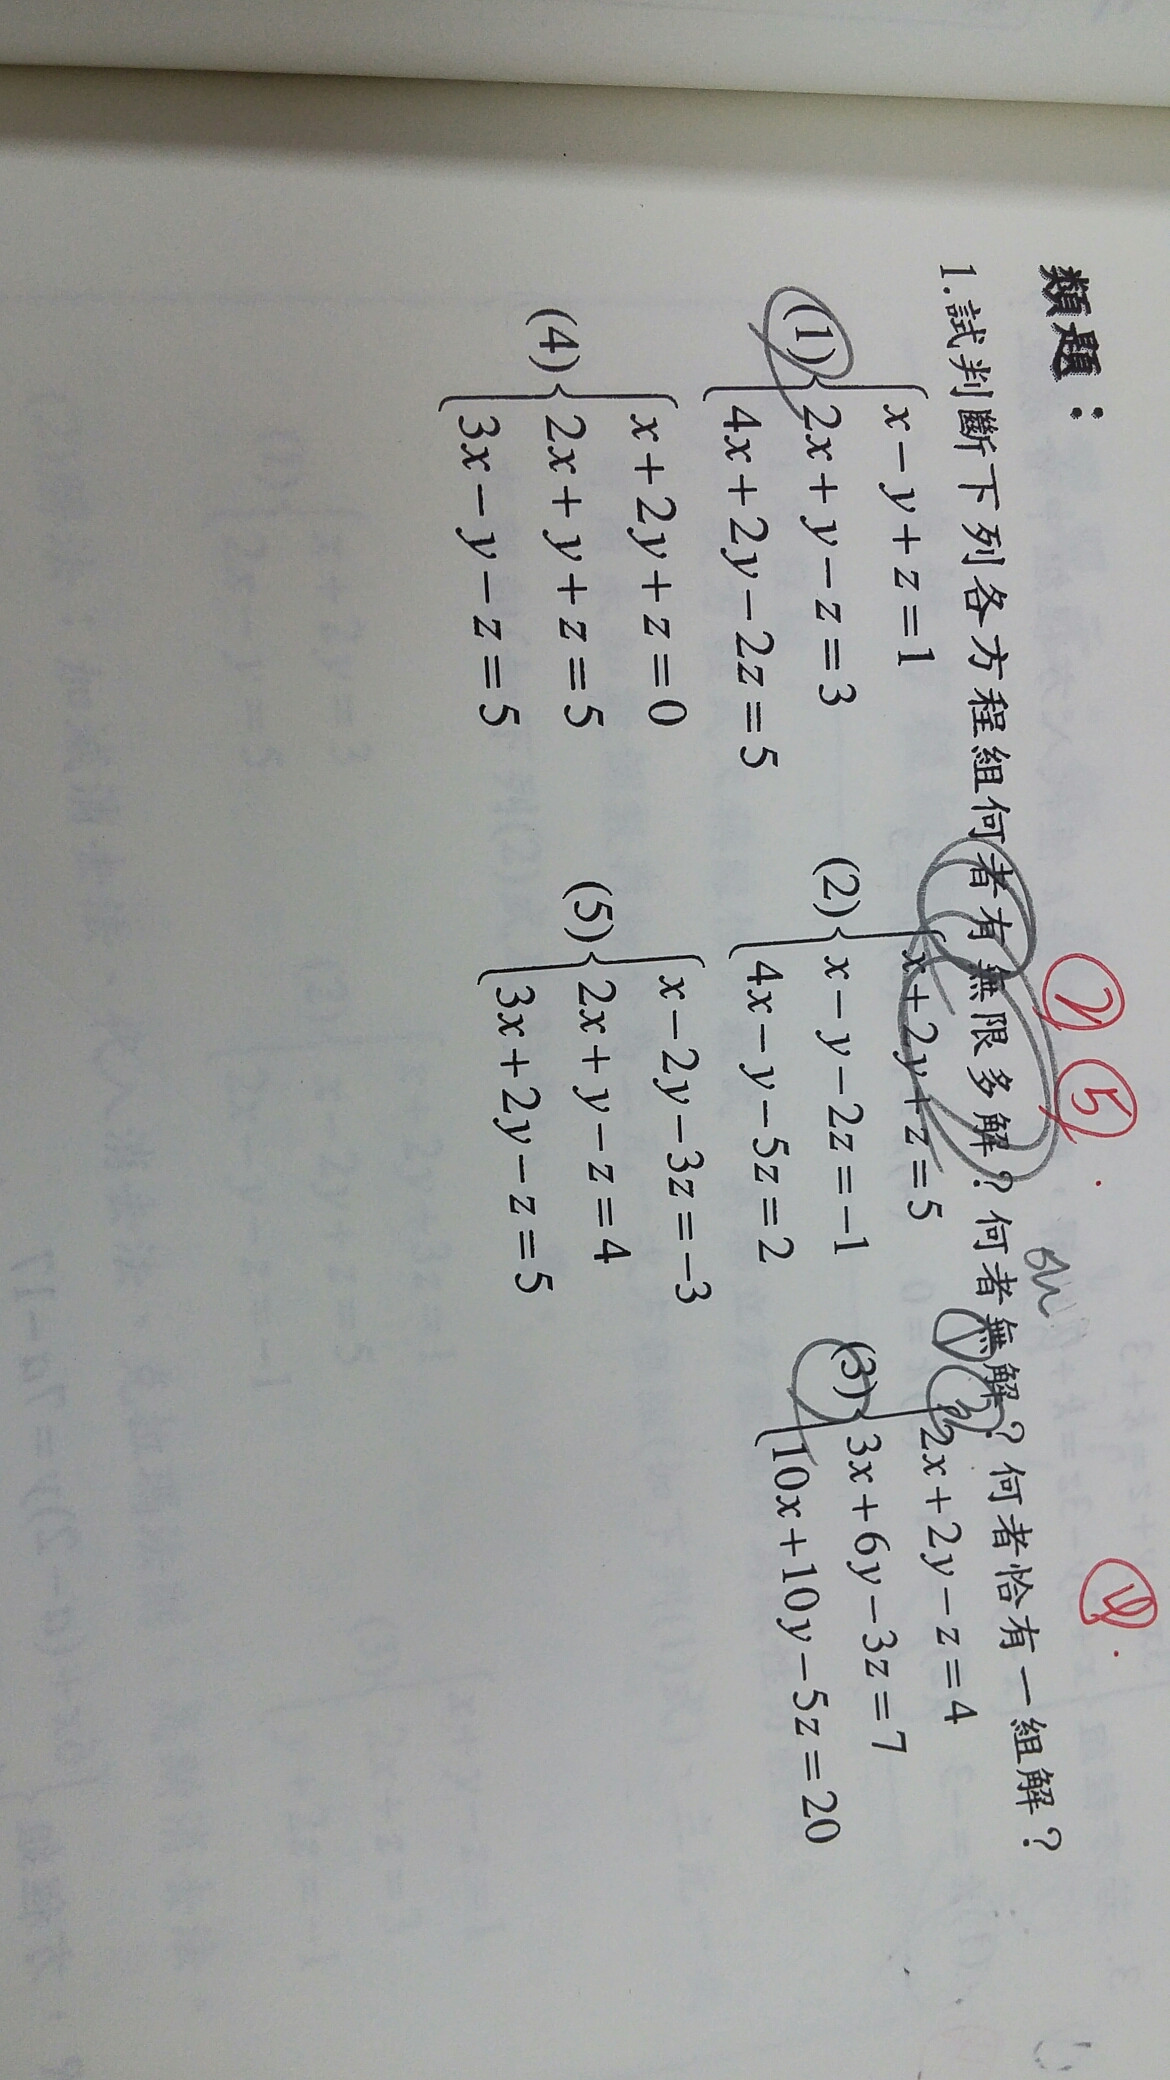 類題：
② ⑤ ④
1.試判斷下列各方程組何者有無限多解？何者無解？何者恰有一組解？
(1) x－y＋z＝1
2x＋y－z＝3
4x＋2y－2z＝5
(2) x＋2y＋z＝5
x－y－2z＝－1
4x－y－5z＝2
(3) 2x＋2y－z＝4
3x＋6y－3z＝7
10x＋10y－5z＝20
(4) x＋2y＋z＝0
2x＋y＋z＝5
3x－y－z＝5
(5) x－2y－3z＝－3
2x＋y－z＝4
3x＋2y－z＝5